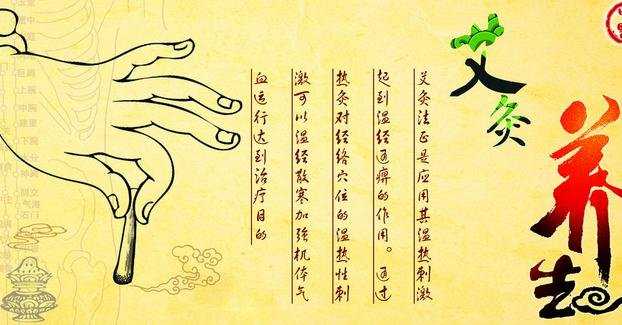 养生
艾灸
艾灸法正是应用其温热刺激
起到温经通痹的作用。通过
热灸对经络穴位的温热性刺
激可以温经散寒加强机体气
血运行达到治疗目的